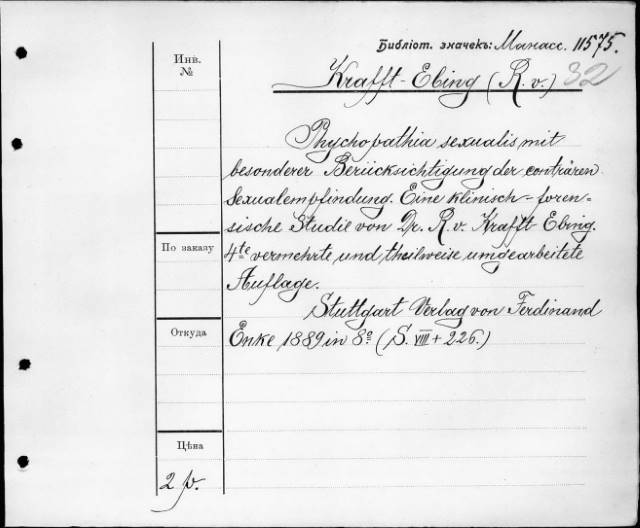 Библіот. значекъ: Манасс. 11575.
Инв.
№
Krafft-Ebing (R. v.) 32
Phychopathia sexualis mit
besonderer Berücksichtigung der conträren
Sexualempfindung. Eine klinisch-foren=
sische Studie von Dr. R. v. Krafft-Ebing.
По заказу
4te vermehrte und theilweise umgearbeitete
Auflage.
Stuttgart Verlag von Ferdinand
Откуда
Enke 1889 in 8º (S. VIII + 226.)
Цѣна
2 р.